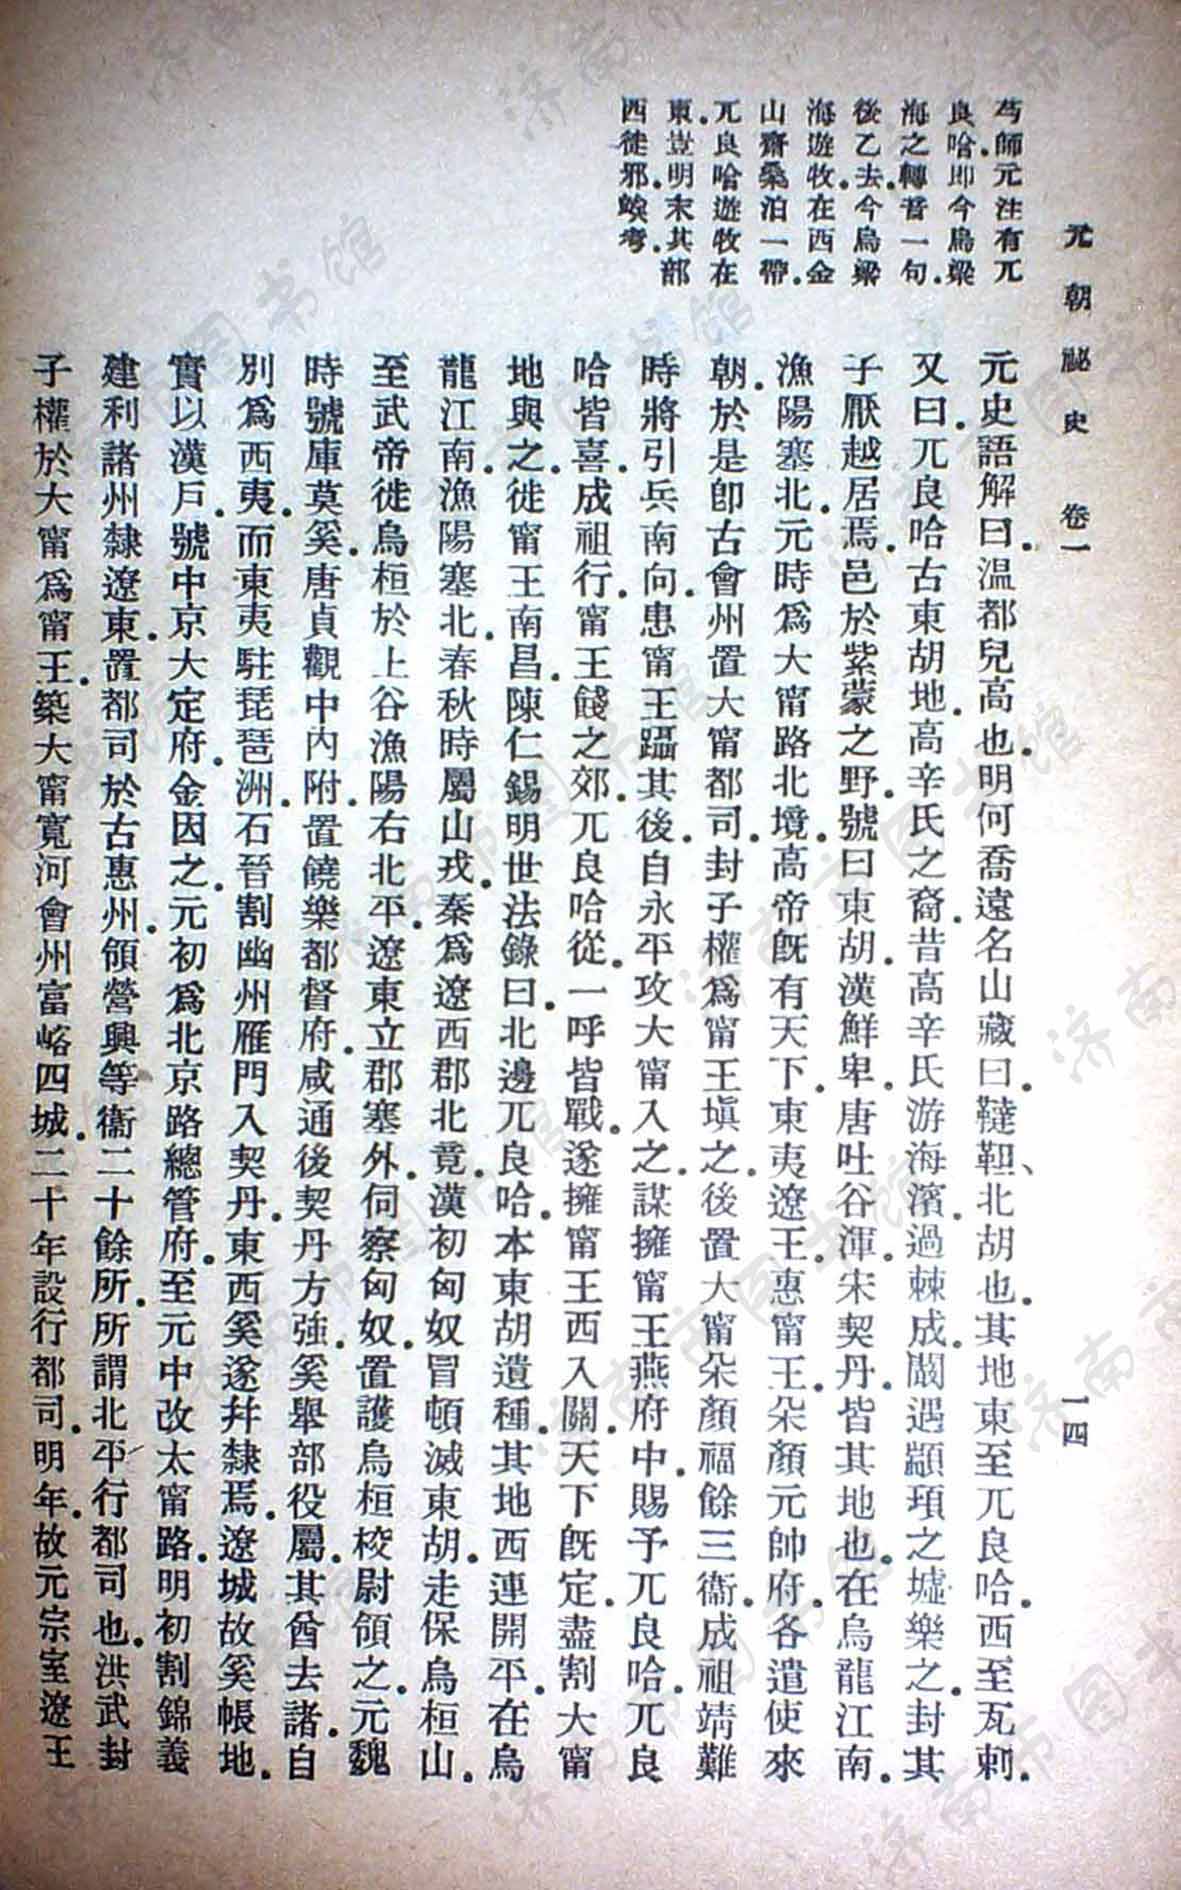 元朝祕史 卷一 一四
芍師元注有兀
良哈即今烏梁
海之轉音一句。
後乙去。今烏梁
海遊牧。在西金
山齋桑泊一帶。
兀良哈遊牧在
東。豈明末其部
西徙邪。竢考。
元史語解曰。溫都兒高也。明何喬遠名山藏曰。韃靼、北胡也。其地東至兀良哈。西至瓦剌。
又曰。兀良哈古東胡地。高辛氏之裔。昔高辛氏游海濱。過棘成。閼遇顓頊之墟樂之。封其
子厭越居焉。邑於紫蒙之野。號曰東胡。漢鮮卑。唐吐谷渾。宋契丹。皆其地也。在烏龍江南。
漁陽塞北。元時爲大甯路北境。高帝旣有天下。東夷遼王。惠甯王。朵顏元帥府。各遣使來
朝。於是卽古會州置大甯都司。封子權爲甯王塡之。後置大甯朵顏福餘三衞。成祖靖難
時將引兵南向。患甯王躡其後。自永平攻大甯入之。謀擁甯王燕府中。賜予兀良哈。兀良
哈皆喜。成祖行。甯王餞之郊。兀良哈從。一呼皆戰。遂擁甯王西入關。天下旣定。盡割大甯
地與之。徙甯王南昌。陳仁錫明世法錄曰。北邊兀良哈。本東胡遺種。其地西連開平。在烏
龍江南。漁陽塞北。春秋時屬山戎。秦爲遼西郡北竟。漢初匈奴冒頓滅東胡。走保烏桓山。
至武帝徙烏桓於上谷漁陽右北平。遼東立郡塞外。伺察匈奴。置護烏桓校尉領之。元魏
時號庫莫奚。唐貞觀中內附。置饒樂都督府。咸通後契丹方強。奚舉部役屬。其酋去諸。自
別爲西夷。而東夷駐琵琶洲。石晉割幽州雁門入契丹。東西奚遂幷隸焉。遼城故奚帳地。
實以漢戶。號中京大定府。金因之。元初爲北京路總管府。至元中改太甯路。明初割錦義
建利諸州隸遼東。置都司於古惠州。領營興等衞二十餘所。所謂北平行都司也。洪武封
子權於大甯爲甯王。築大甯寬河會州富峪四城。二十年設行都司。明年。故元宗室遼王